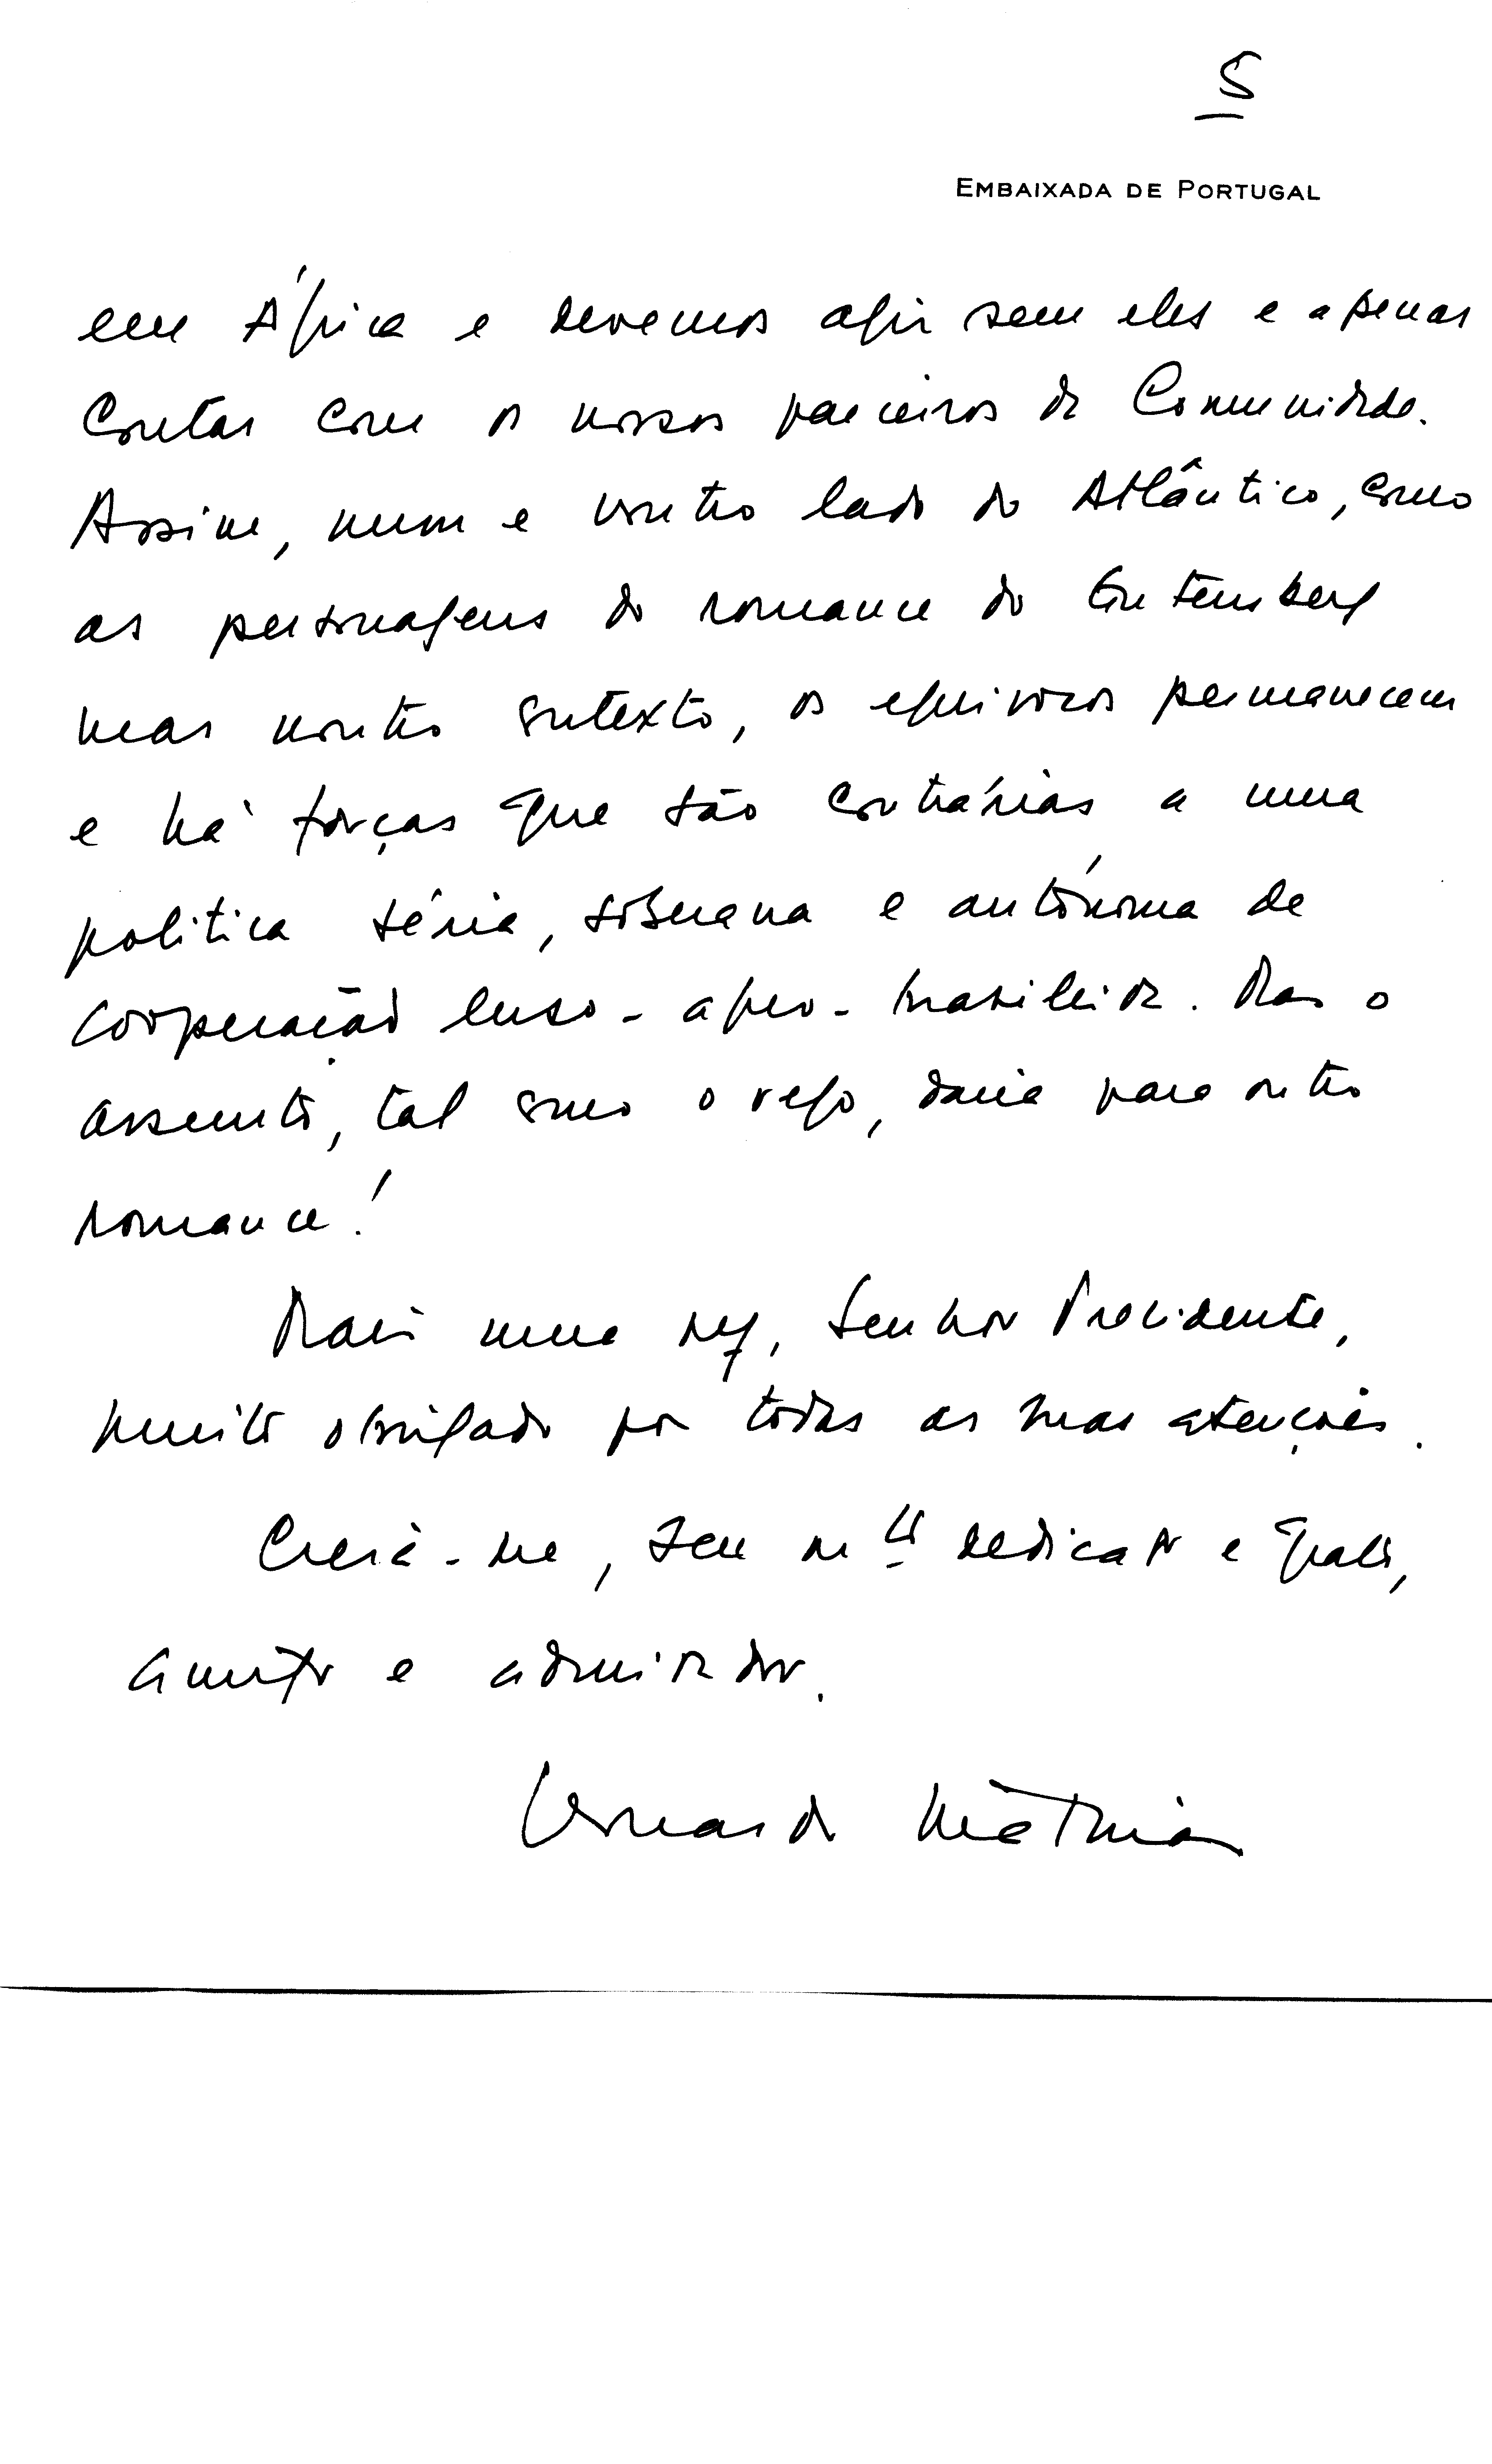 5
EMBAIXADA DE PORTUGAL
em África e devemos agir sem eles e apenas
contar com os nossos parceiros da Comunidade.
Assim, num e noutro lado do Atlântico, como
as personagens do romance do Gutemberg
mas noutro contexto, os equívocos permanecem
e há forças que são contrárias a uma
politica séria, soberana e autónoma de
cooperação luso-afro-brasileira. Mas o
assunto, tal como o vejo, daria para outro
romance!
Mais uma vez, Senhor Presidente,
muito obrigado por todas as suas atenções.
Creia-me, seu mto dedicado e grato,
amigo e admirador.
Leonardo Mathias